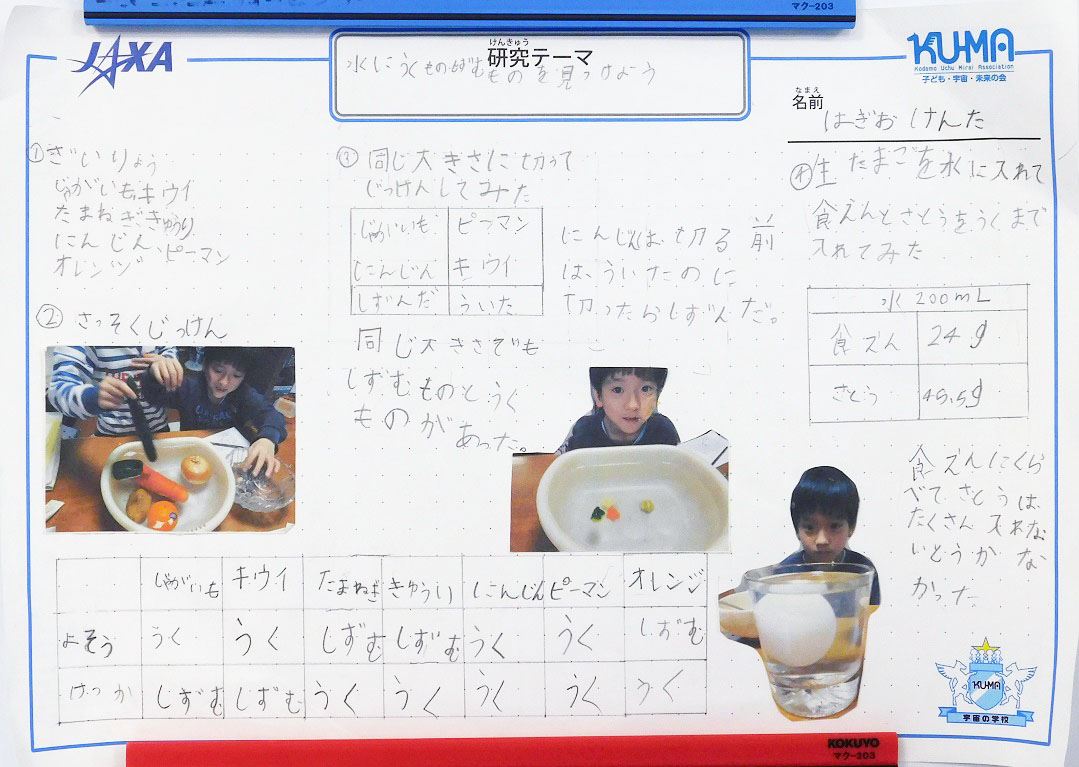 マク-203
JAXA
けんきゅう
研究テーマ
水にうくものしずむものを見つけよう
KU-MA
Kodomo Uchu Mirai Association
子ども・宇宙・未来の会
なまえ
名前
はぎお けんた
① ざいりょう
じゃがいも キウイ
たまねぎ きゅうり
にんじん、ピーマン
オレンジ
② さっそくじっけん
③ 同じ大きさに切って
じっけんしてみた
じゃがいも ピーマン
にんじん キウイ
しずんだ ういた
にんじんは、切る前
は、ういたのに
切ったらしずんだ。
同じ大きさでも
しずむものとうく
ものがあった。
④ 生たまごを水に入れて
食えんとさとうをうくまで
入れてみた
水 200mL
食えん 24g
さとう 45.5g
食えんにくら
べてさとうは
たくさん入れな
いとうかな
かった
じゃがいも キウイ たまねぎ きゅうり にんじん ピーマン オレンジ
よそう うく うく しずむ しずむ うく うく しずむ
けっか しずむ しずむ うく うく うく うく うく
KU-MA
宇宙の学校
KOKUYO
マク-203